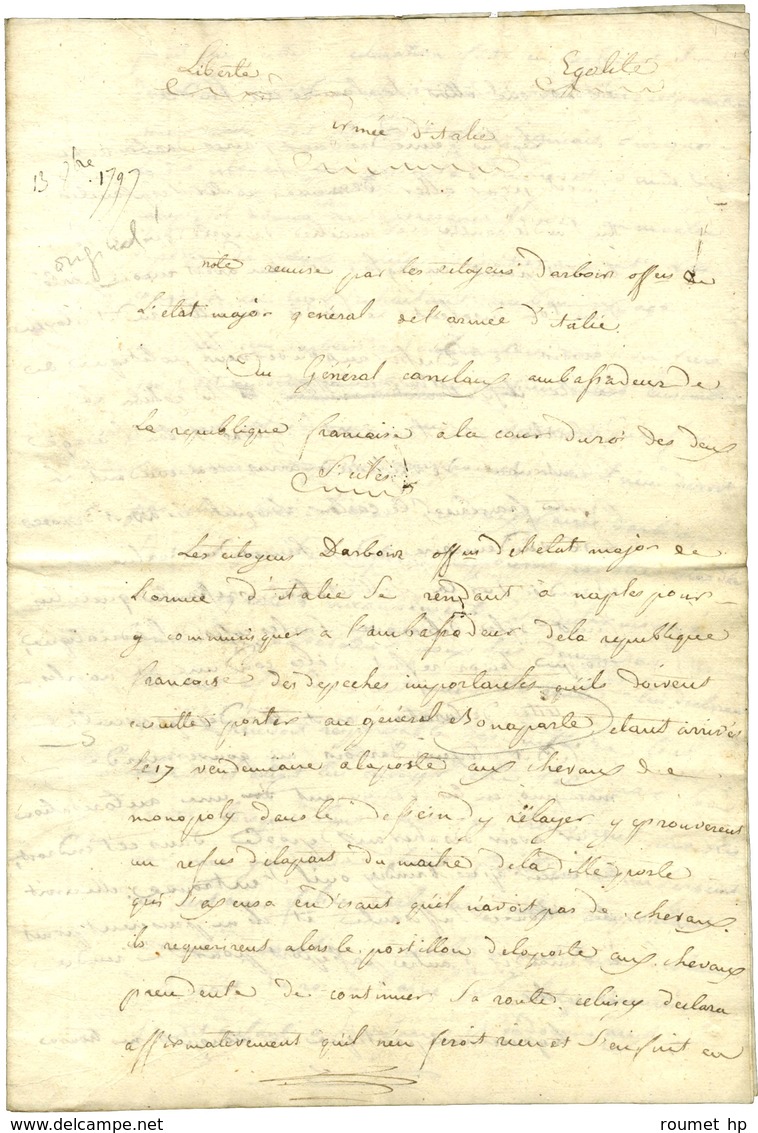 Liberté Egalité
armée d'italie
13 7bre 1797
original
note remise par les citoyens Darboin offers de
L'état major général de l'armée d'italie.
au Général canclaux ambassadeur de
La republique francaise à la cour du roi des deux
Siciles
Les citoyens Darboin offers de l'etat major de
L'armée d'italie Se rendant à naples pour
y communiquer à l'ambassadeur de la republique
francoise des depeches importantes qu'ils doivent
ensuitte porter au général Bonaparte etant arrivés
le 17 vendemiaire a la poste aux chevaux de
monopoly dans le dessein d'y rélayer y eprouverent
un refus de la part du maitre de la ditte poste
qui S'axcusa en disant qu'il n'avoit pas de chevaux
ils requerirent alors le postillon de la poste aux chevaux
precedente de continuer Sa route. celuicy declara
affirmativement qu'il n'en feroit rien et S'enfuit en
roumet hp